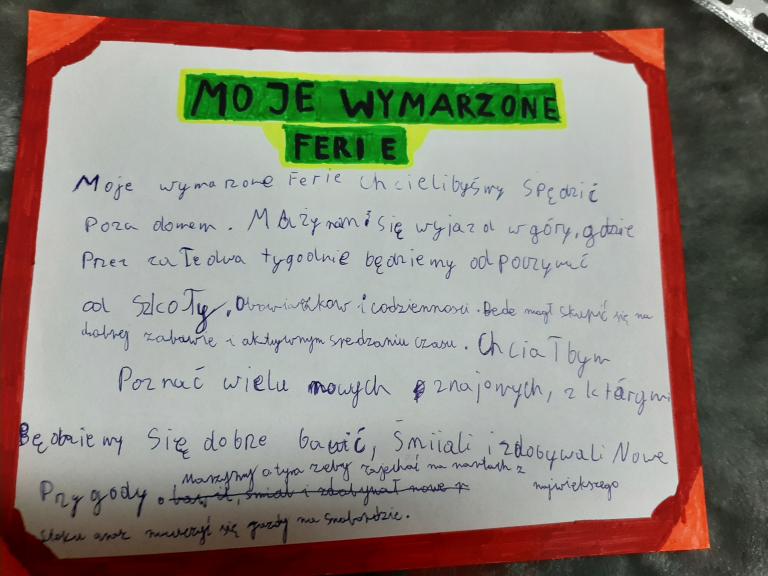 MOJE WYMARZONE
FERIE
Moje wymarzone Ferie chcielibyśmy spędzić
Poza domem. MAży nam się wyjazd w góry, gdzie
Przez całe dwa tygodnie będziemy odpoczywać
od szkoły, obowiązków i codzienności. Bede mógł skupić się na
dobrej zabawie i aktywnym spedzaniu czasu. Chciałbym
Poznać wielu nowych znajomych, z którymi
Będziemy się dobrze bawić, śmiali i zdobywali Nowe
Marzymy o tym żeby zjechać na nartach z największego
Przygody. bawił, śmiał i zdobywał nowe
stoku oraz nauczyć się jazdy na snobordzie.